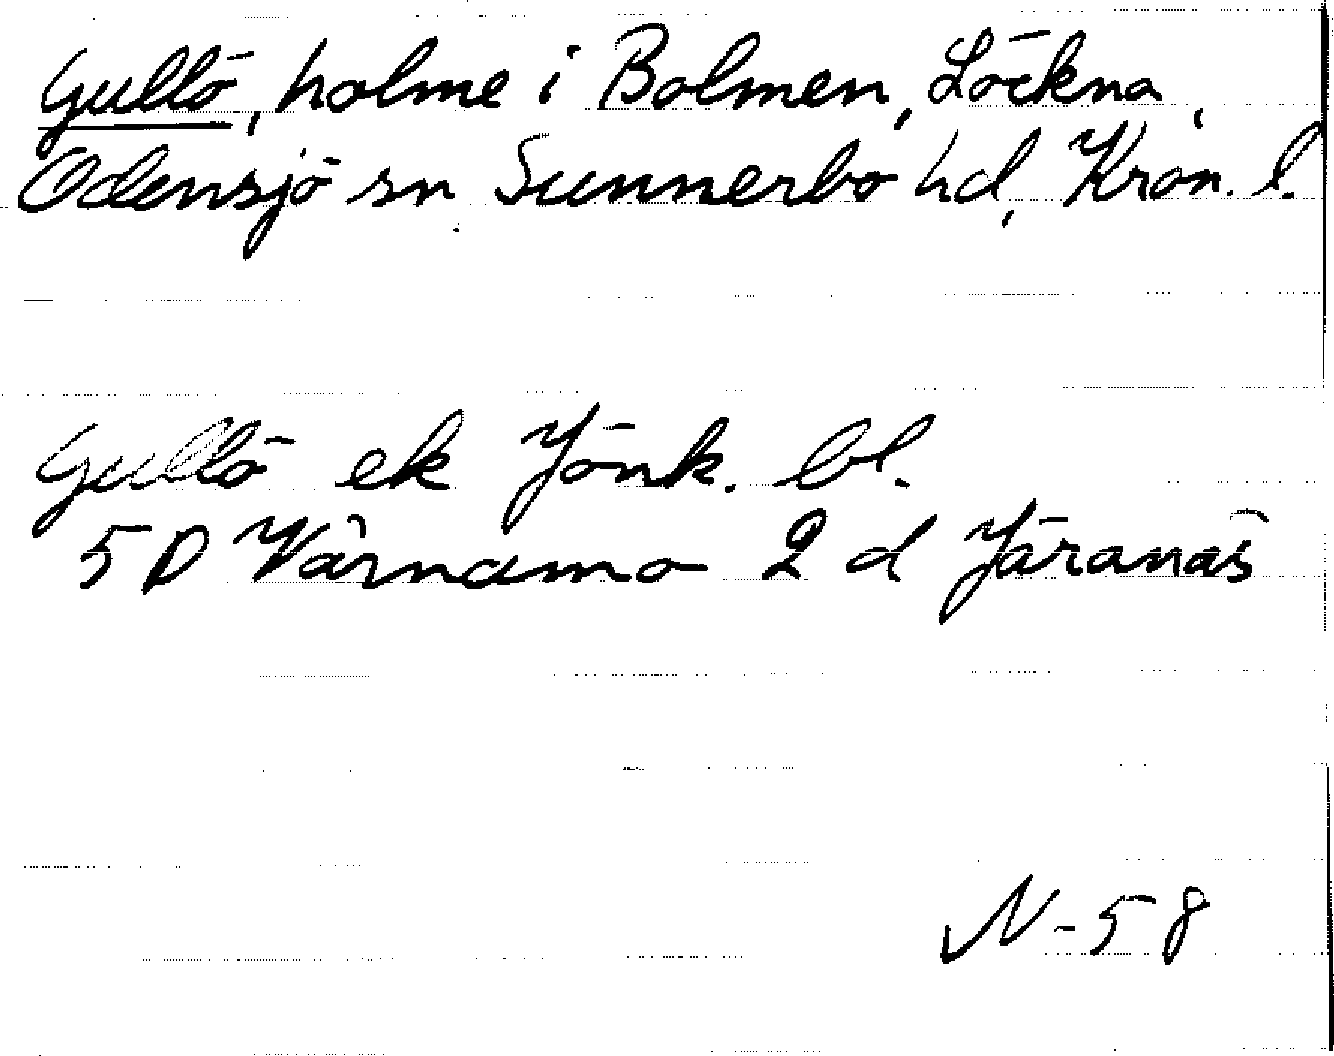 Gullö, holme i Bolmen, Löckna,
Odensjö sn Sunnerbo hd, Kron. l.
Gullö ek Jönk. bl.
5 D Värnamo 2 d Järanäs
N-58